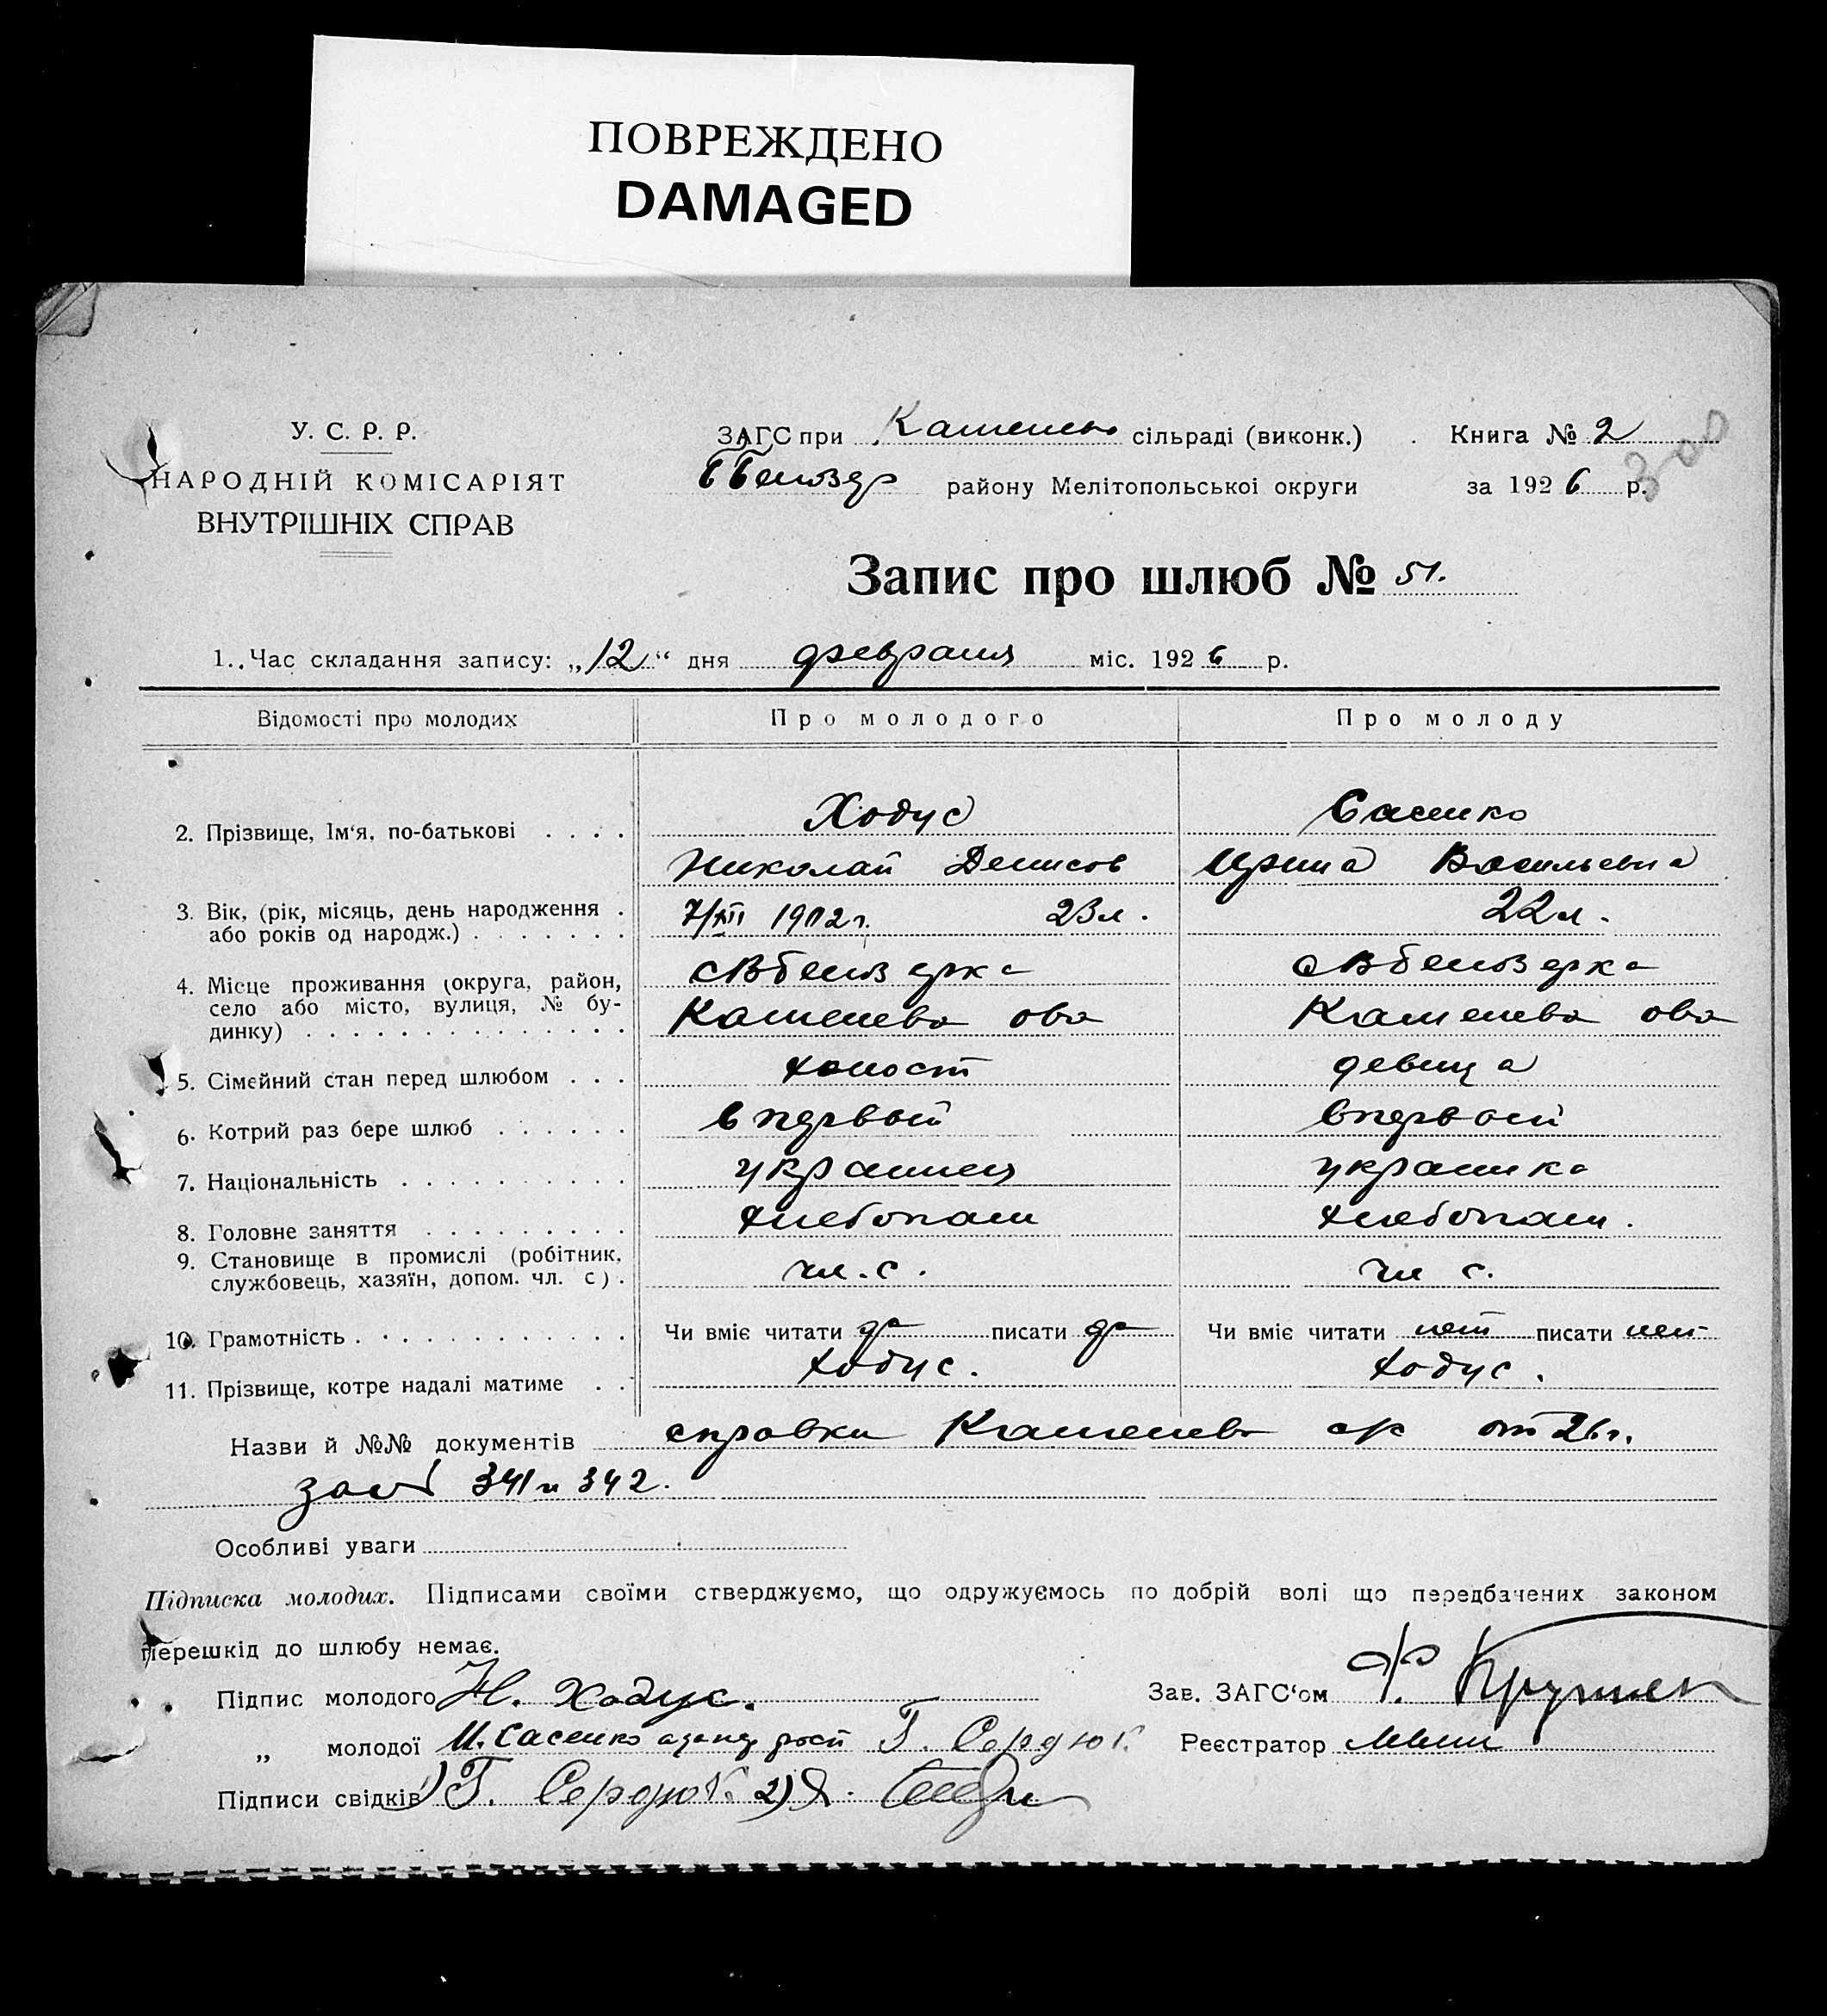 ПОВРЕЖДЕНО
DAMAGED
У. С. Р. Р.
НАРОДНІЙ КОМІСАРІЯТ
ВНУТРІШНІХ СПРАВ
ЗАГС при сільраді (виконк.) Книга № 2
300
району Мелітопольської округи за 1926 р.
Запис про шлюб № 51.
1. Час складання запису: „12“ дня февраля міс. 1926 р.
Відомості про молодих Про молодого Про молоду
2. Прізвище, Ім'я, по-батькові . . . . Ходус Сасенко
Николай Денисов Ирина Васильевна
3. Вік, (рік, місяць, день народження . 7/XII 1902 г. 23 л. 22 л.
або років од народж.) . . . . . . .
4. Місце проживання (округа, район, сВбелозерка сВбелозерка
село або місто, вулиця, № бу-
динку) . . . . . . . . . . . . . .
5. Сімейний стан перед шлюбом . . . холост девица
6. Котрий раз бере шлюб . . . . . . в первой в первой
7. Національність . . . . . . . . . . украинец украинка
8. Головне заняття . . . . . . . . . хлебопаш хлебопаш.
9. Становище в промислі (робітник,
службовець, хазяїн, допом. чл. с) . чл. с. чл с.
10. Грамотність . . . . . . . . . . . . Чи вміє читати да писати да Чи вміє читати нет писати нет
11. Прізвище, котре надалі матиме . . Ходус. Ходус.
Назви й №№ документів справки с/с от 26 г.
за № 341 и 342.
Особливі уваги
Підписка молодих. Підписами своїми стверджуємо, що одружуємось по добрій волі що передбачених законом
перешкід до шлюбу немає.
Підпис молодого Н. Ходус. Зав. ЗАГС'ом Ф.
„ молодої И. Сасенко Г. Сердюк Реєстратор
Підписи свідків 1) Г. Сердюк 2) Я.